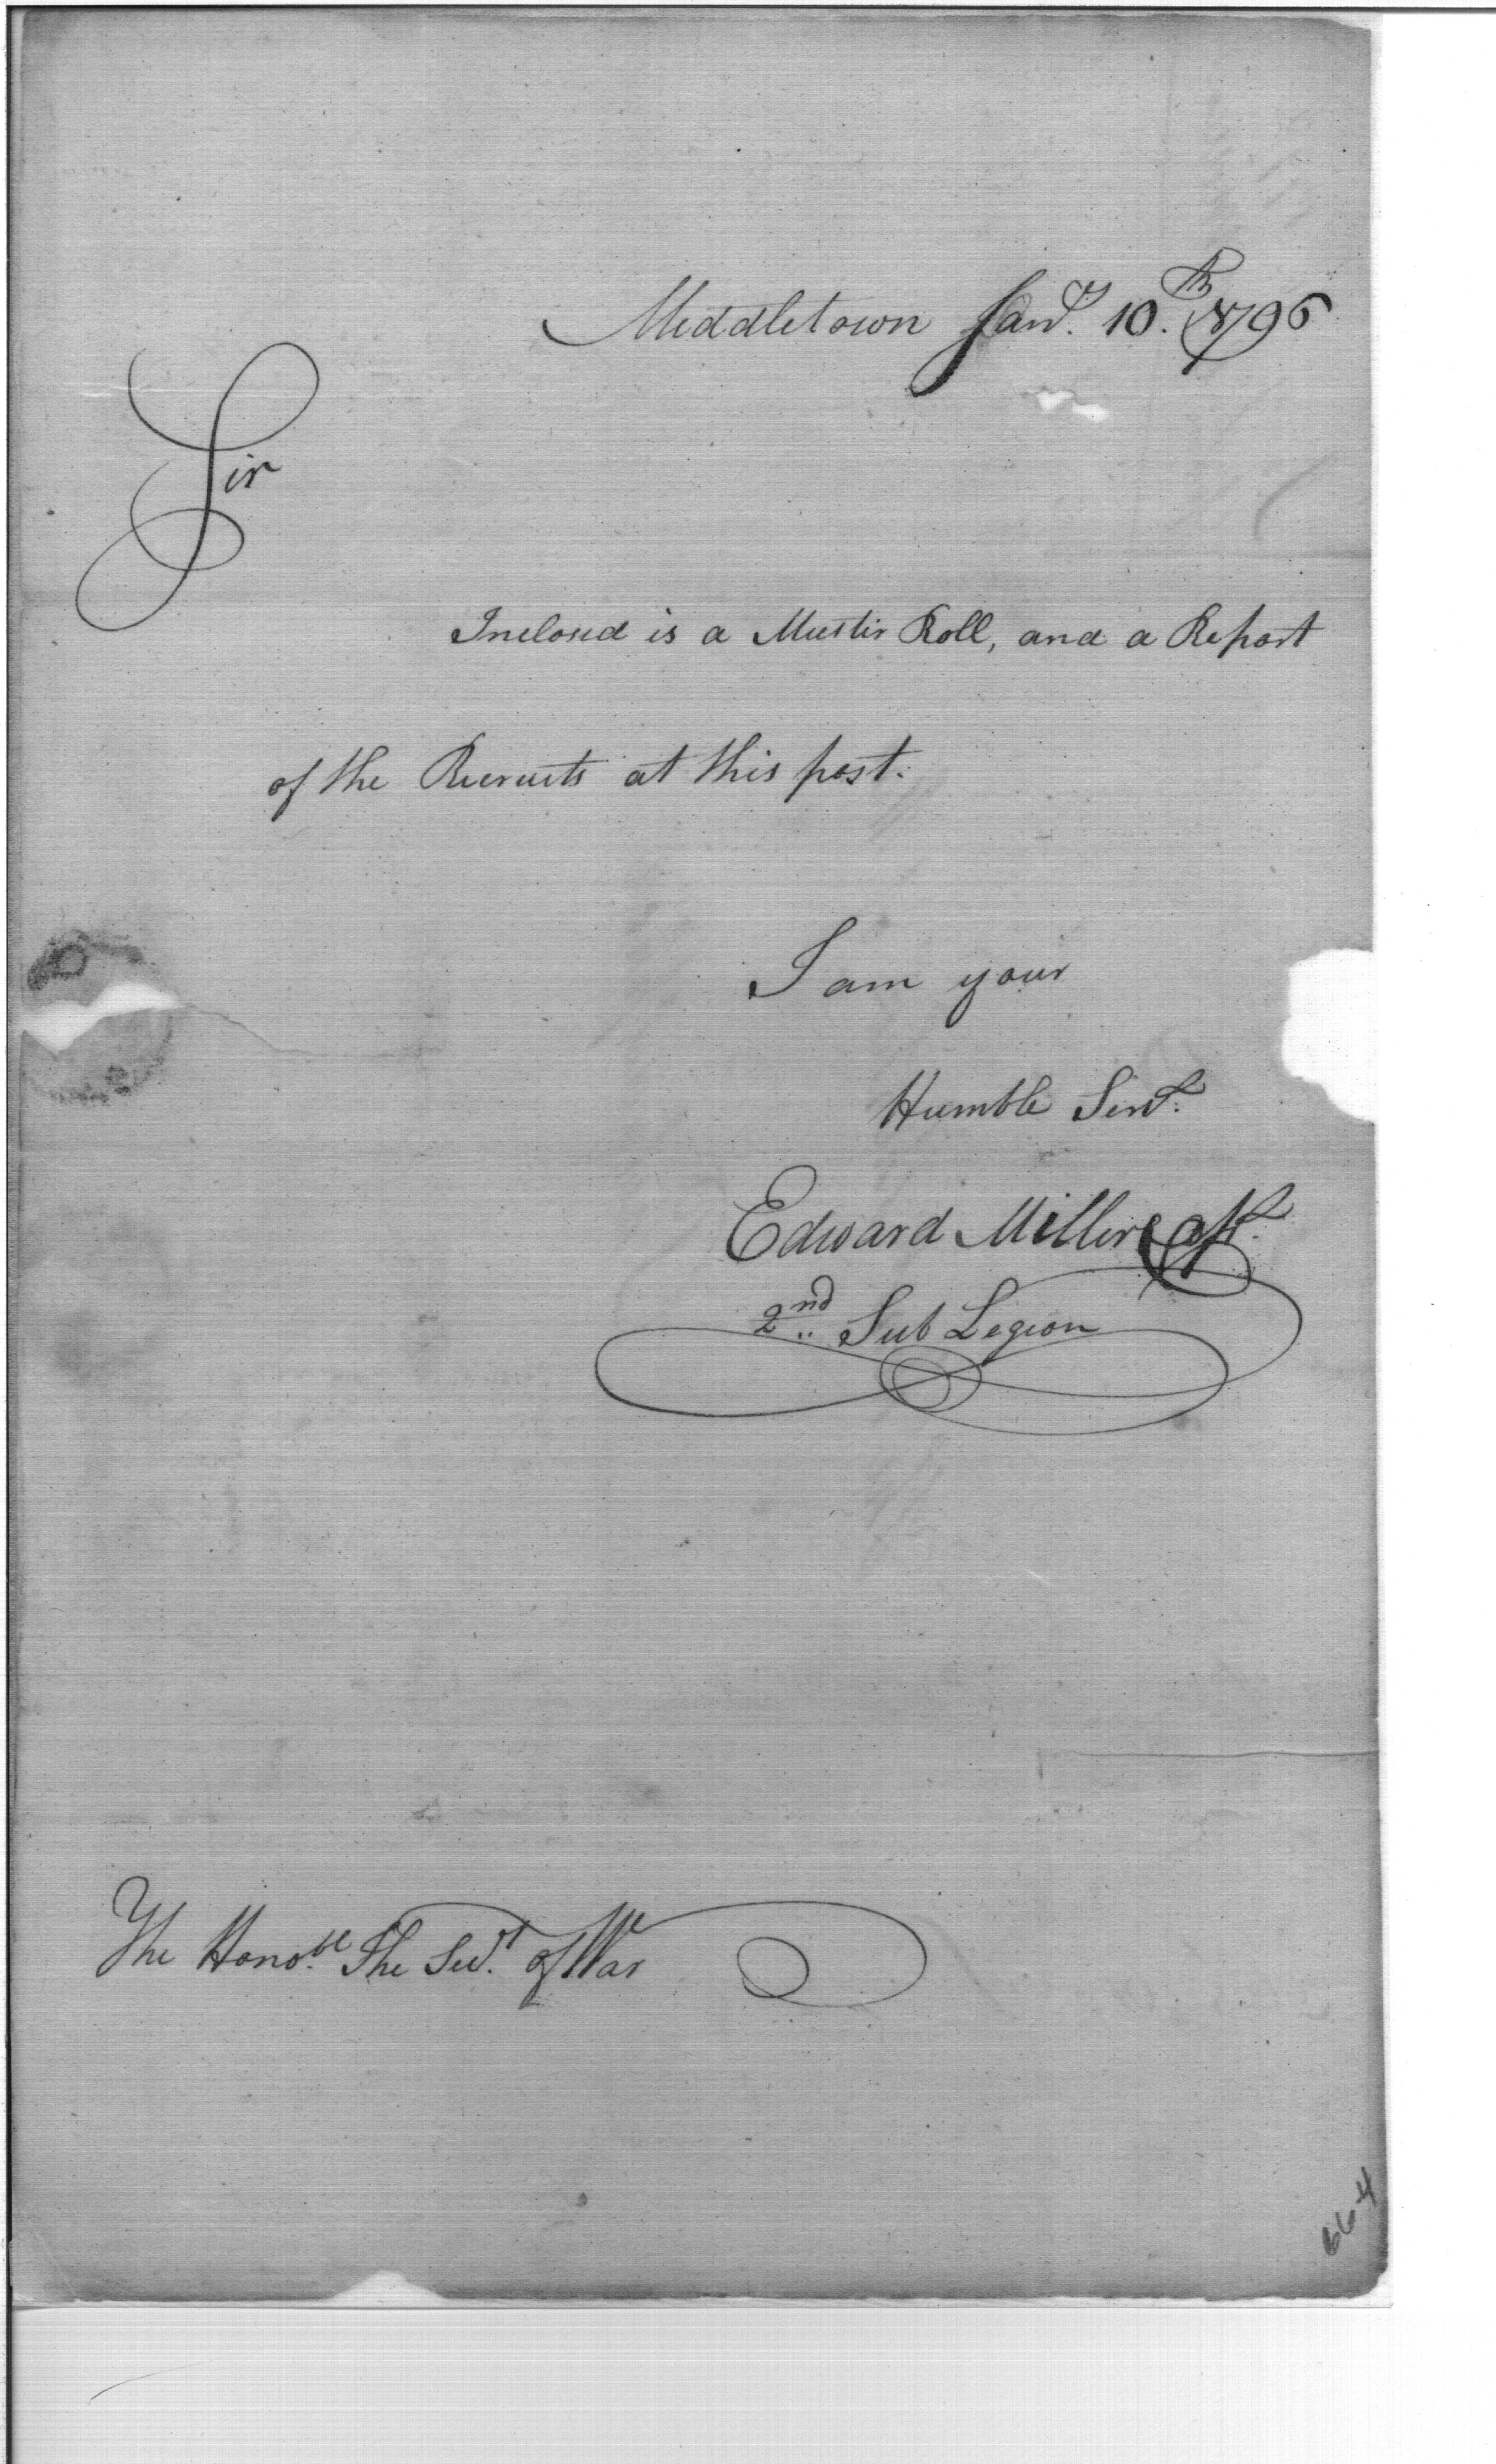 Middletown Jany. 10.th 1796
Sir
Inclosed is a Muster Roll, and a Report
of the Recruits at this post.
I am your
Humble Servt.
Edward Miller Capt.
2nd Sub Legion
The Honoble. The Secy. of War
664